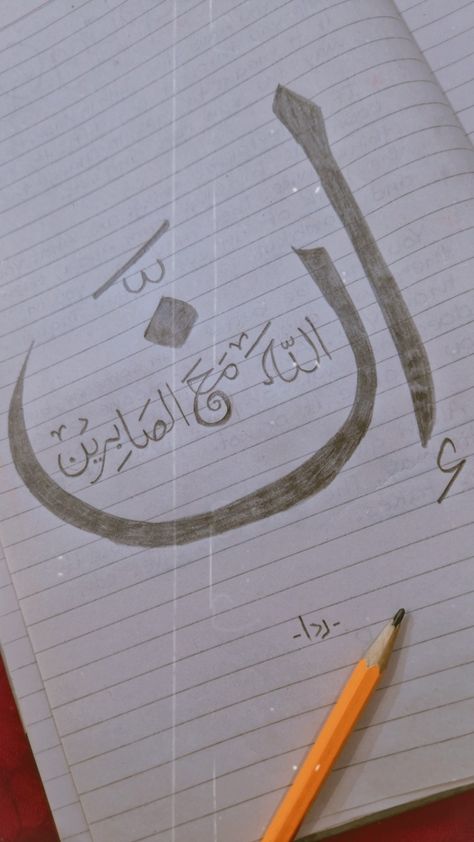 إنَّ
اللّٰهَ مَعَ الصَابِرينْ